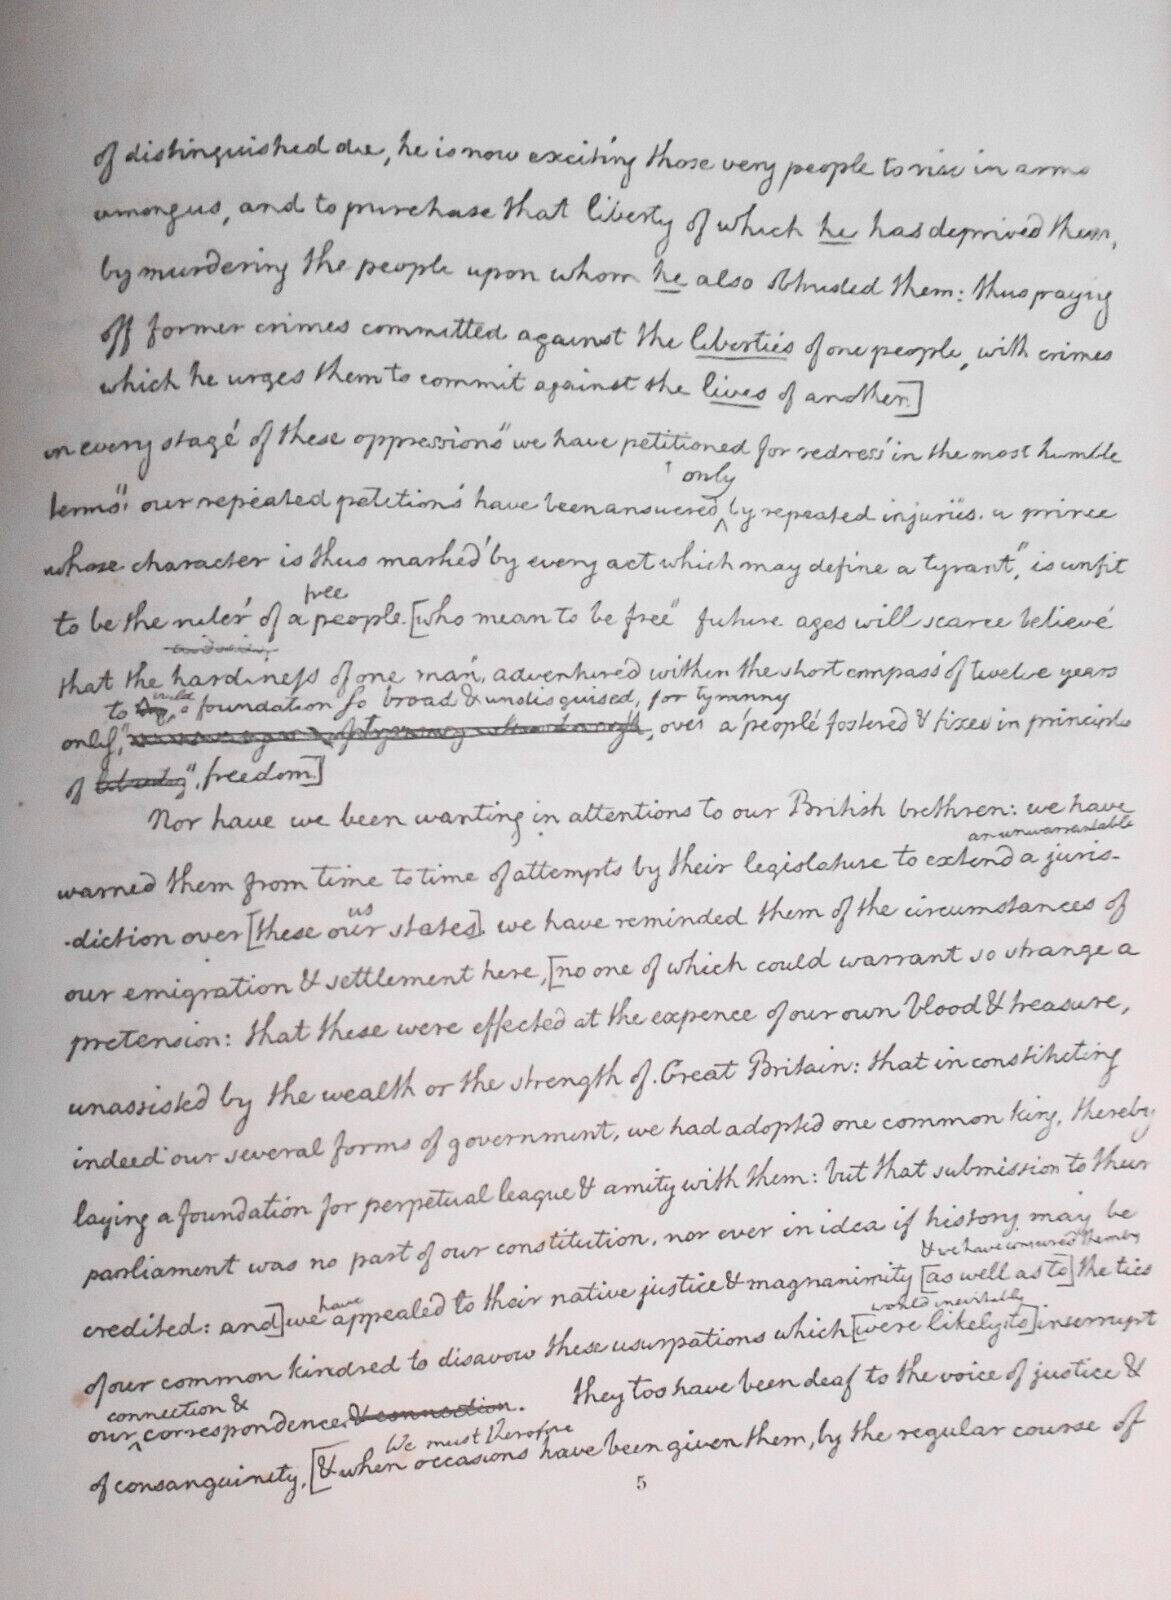 of distinguished die, he is now exciting those very people to rise in arms
among us, and to purchase that liberty of which he has deprived them,
by murdering the people upon whom he also obtruded them: thus paying
off former crimes committed against the liberties of one people, with crimes
which he urges them to commit against the lives of another.]
in every stage' of these oppressions" we have petitioned for redress' in the most humble
only
terms"; our repeated petitions' have been answered ^ by repeated injuries. a prince
whose character is thus marked' by every act which may define a tyrant", is unfit
free
to be the ruler' of a people. [who mean to be free" future ages will scarce believe'
that the hardiness of one man, adventured within the short compass' of twelve years
to build a foundation so broad & undisguised, for tyranny
only," over a 'people' fostered & fixed in principles
of liberty", freedom.]
Nor have we been wanting in attentions to our British brethren: we have
an unwarrantable
warned them from time to time of attempts by their legislature to extend a juris-
us
-diction over [these our states]. we have reminded them of the circumstances of
our emigration & settlement here, [no one of which could warrant so strange a
pretension: that these were effected at the expence of our own blood & treasure,
unassisted by the wealth or the strength of Great Britain: that in constituting
indeed our several forms of government, we had adopted one common king, thereby
laying a foundation for perpetual league & amity with them: but that submission to their
parliament was no part of our constitution, nor ever in idea if history may be
& we have conjured them by
credited: and] we have appealed to their native justice & magnanimity [as well as to] the ties
would inevitably
of our common kindred to disavow these usurpations which [were likely to] interrupt
connection &
our ^ correspondence & connection. they too have been deaf to the voice of justice &
We must therefore
of consanguinity, [& when occasions have been given them, by the regular course of
5